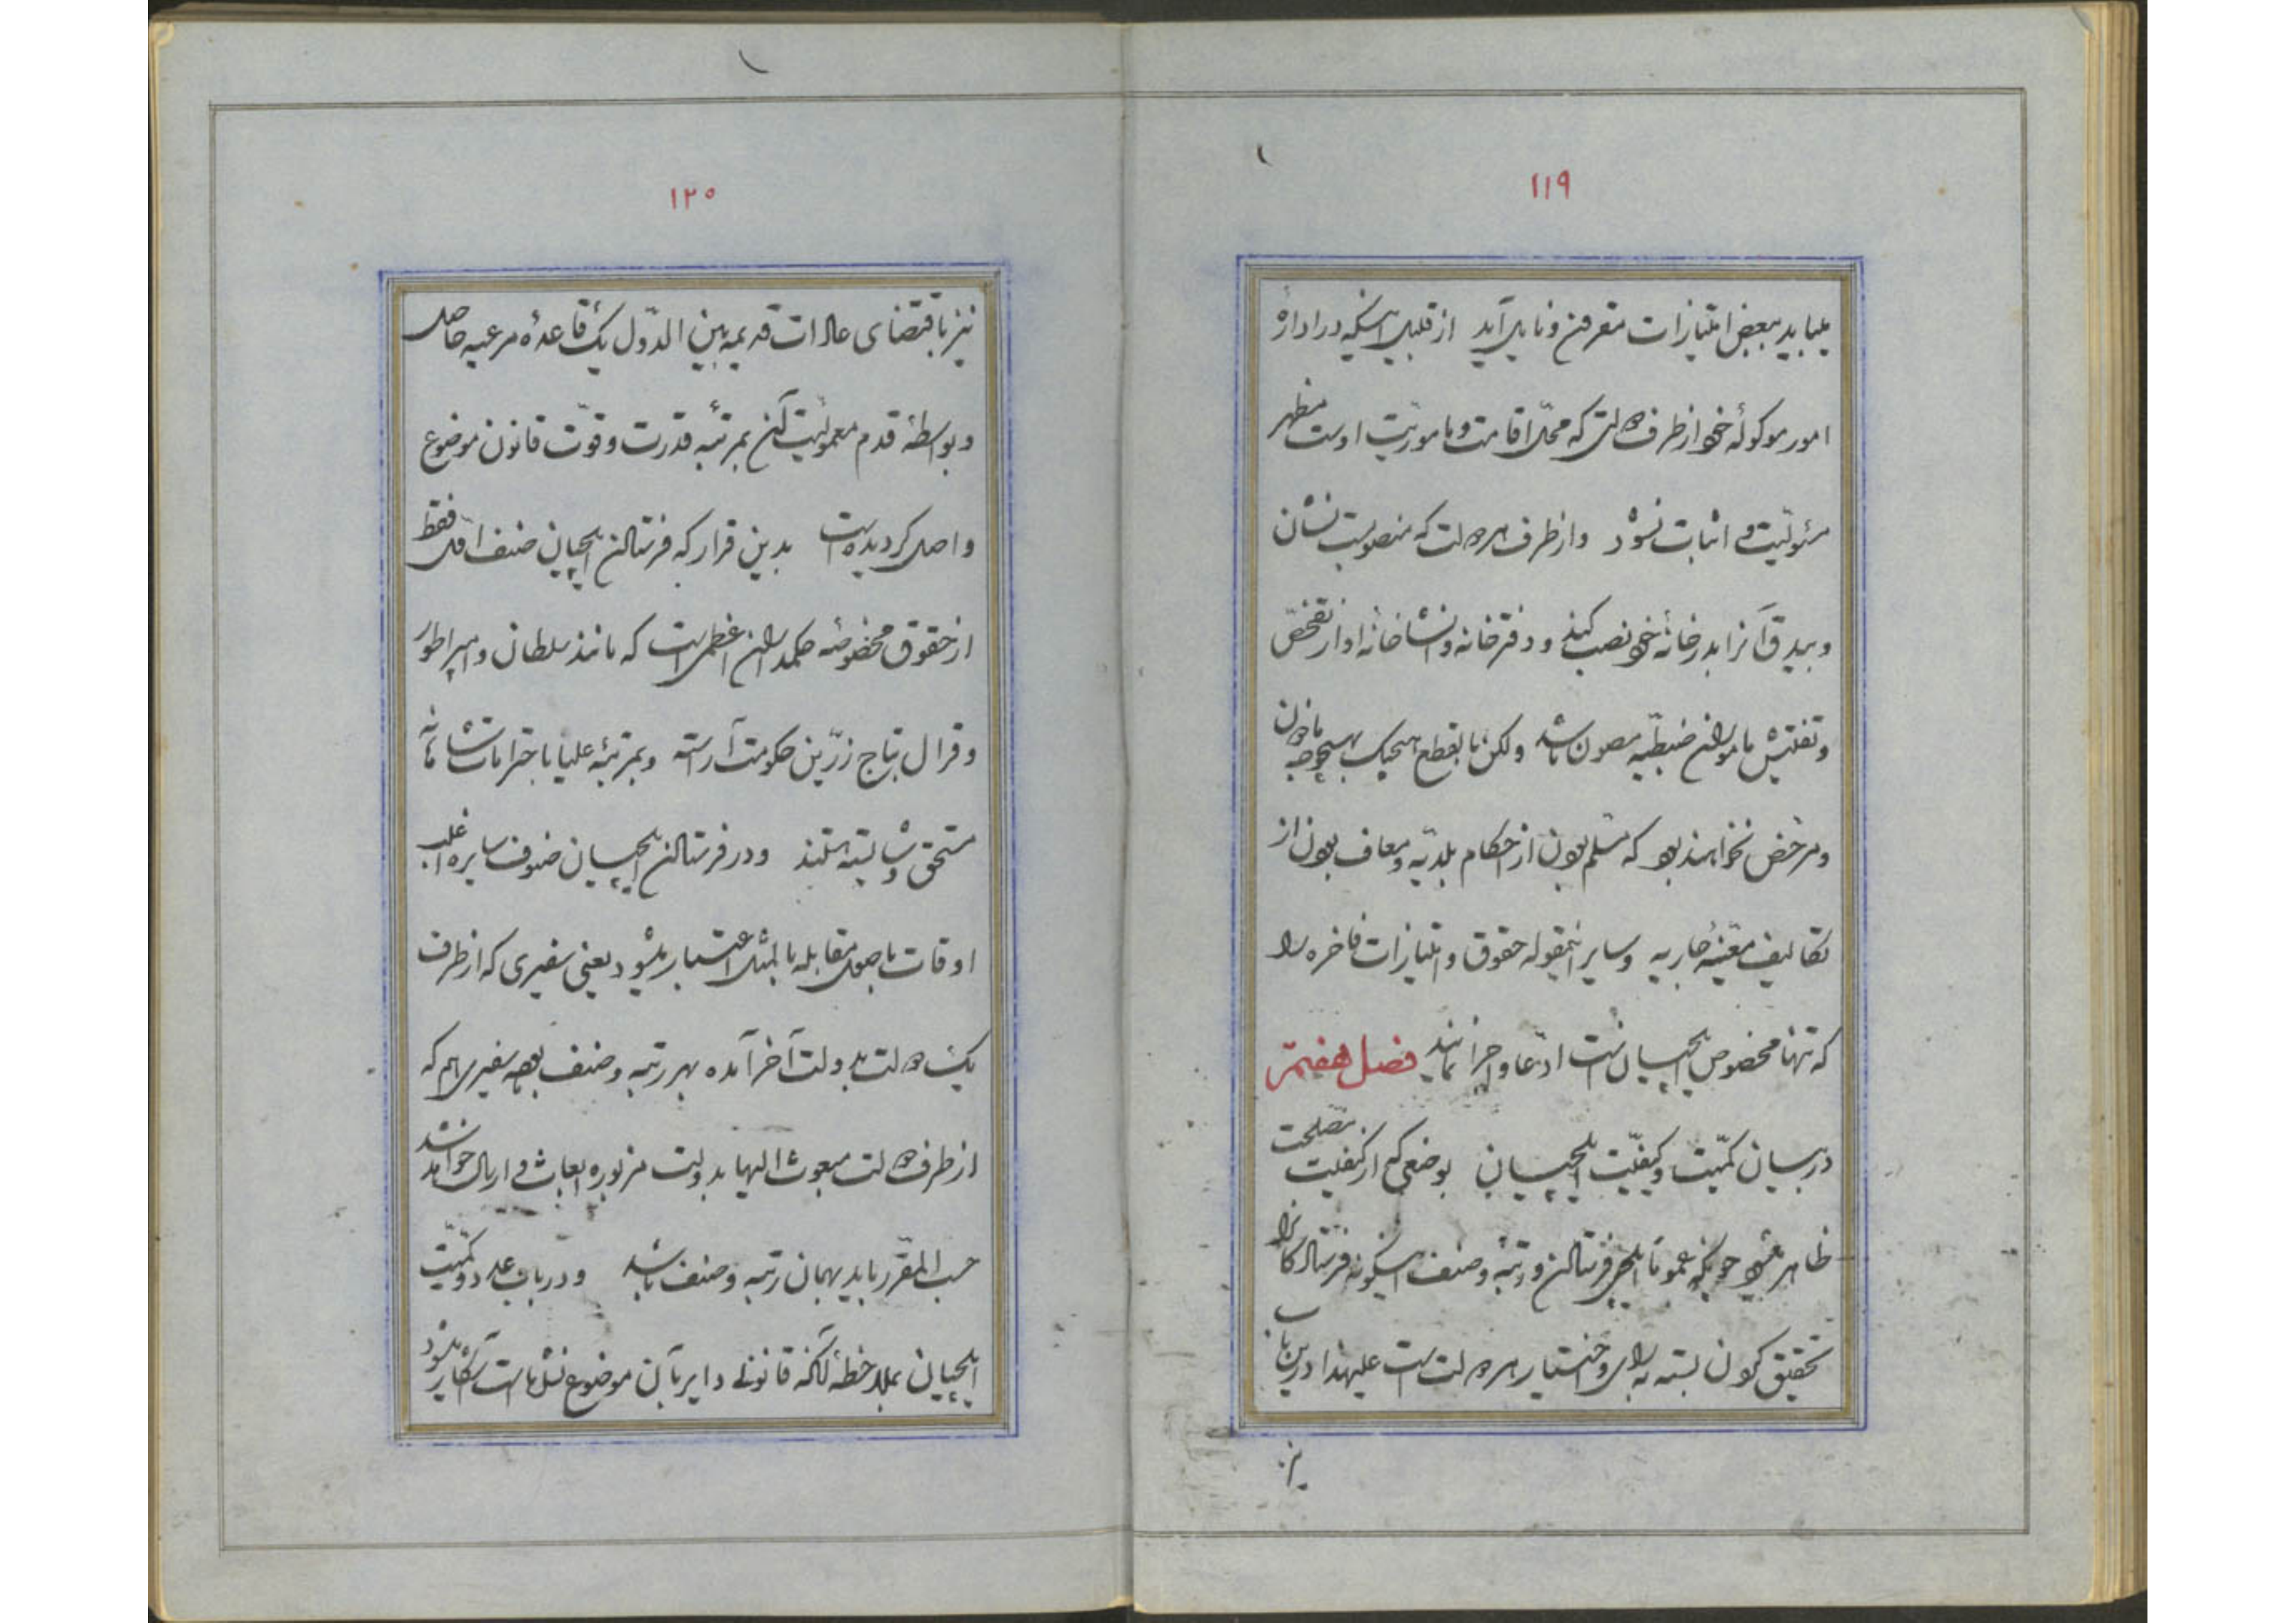 ۱۱۹
میباید ببعض امتیازات مقرون و نایل آید از قبیل اینکه در ادارهٔ
امور موکولهٔ خود از طرف دولتی که محل اقامت و مأموریت اوست مظهر
مسئولیت و اثبات نشود و از طرف هر دولت که منصوبست نشان
و بیدق آنرا بدر خانهٔ خود نصب کند و دفترخانه و نشانخانهٔ او از تفحص
و تفتیش مأمورین ضبطیه مصون باشد ولکن بالقطع هیچیک بهیچوجه مأذون
و مرخص نخواهند بود که مسلم بودن از احکام بلدیه و معاف بودن از
تکالیف معینهٔ جاریه و سایر اینمقوله حقوق و امتیازات فاخره را
که تنها مخصوص ایلچیان است ادعا و اجرا نمایند فصل هفتم
در بیان کمیت و کیفیت ایلچیان بوضعی که از کیفیت مصلحت
ظاهر میشود چونکه عموماً ایلچی فرستادن و رتبه و صنف اینگونه فرستادگانرا
تحقیق کردن بسته به رأی و اختیار هر دولت است علیهذا درین باب
نیز
۱۲۰
نیز باقتضای عادات قدیمه بین الدول یک قاعدهٔ مرعیه حاصل
و بواسطهٔ قدم معمولیت آن بمرتبهٔ قدرت و قوت قانون موضوع
واصل گردیده است بدین قرار که فرستادن ایلچیان صنف اول فقط
از حقوق مخصوصه حکمداران اعظمی است که مانند سلطان و امپراطور
و قرال بتاج زرین حکومت آراسته و بمرتبهٔ علیا باحترامات شاهانه
مستحق و شایسته هستند و در فرستادن ایلچیان صنوف سایره اغلب
اوقات باصول مقابله بالمثل اعتبار میشود یعنی سفیری که از طرف
یک دولت بدولت آخر آمده بهر رتبه و صنف بوده سفیری هم که
از طرف دولت مبعوث الیها بدولت مزبوره بعاث و ارسال خواهد شد
حسب المقرر باید بهمان رتبه و صنف باشد و در باب عدد و کمیت
ایلچیان بملاحظهٔ آنکه قانونی دایر بآن موضوع نشده است آشکار میشود